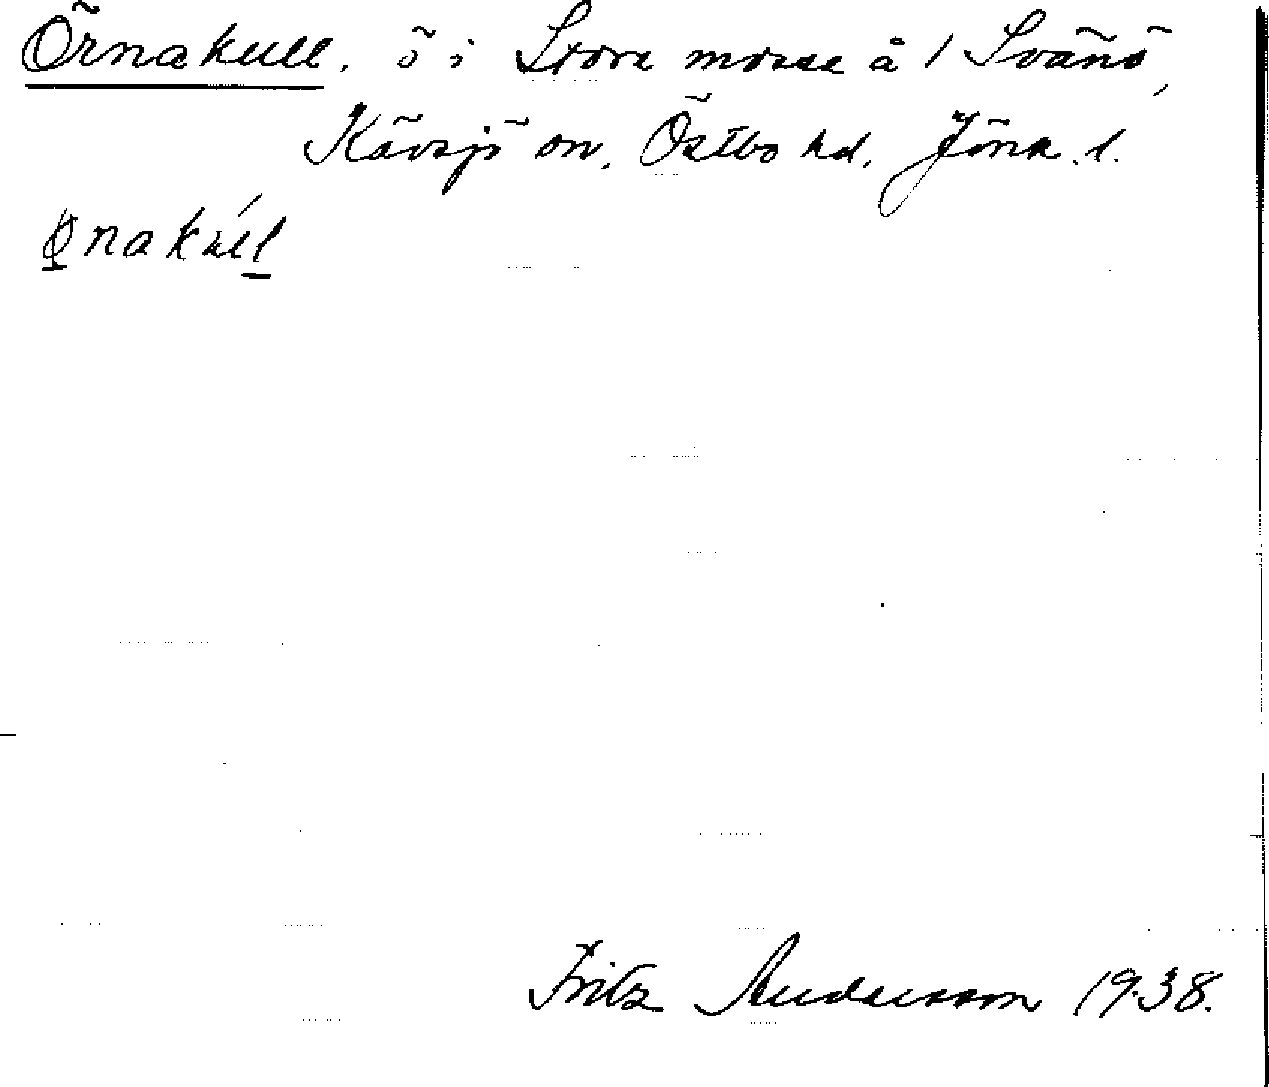 Örnakull, ö i Stora mosse å 1 Svänö,
Kävsjö sn, Östbo hd, Jönk. l.
ønakúll
Fritz Andersson 1938.